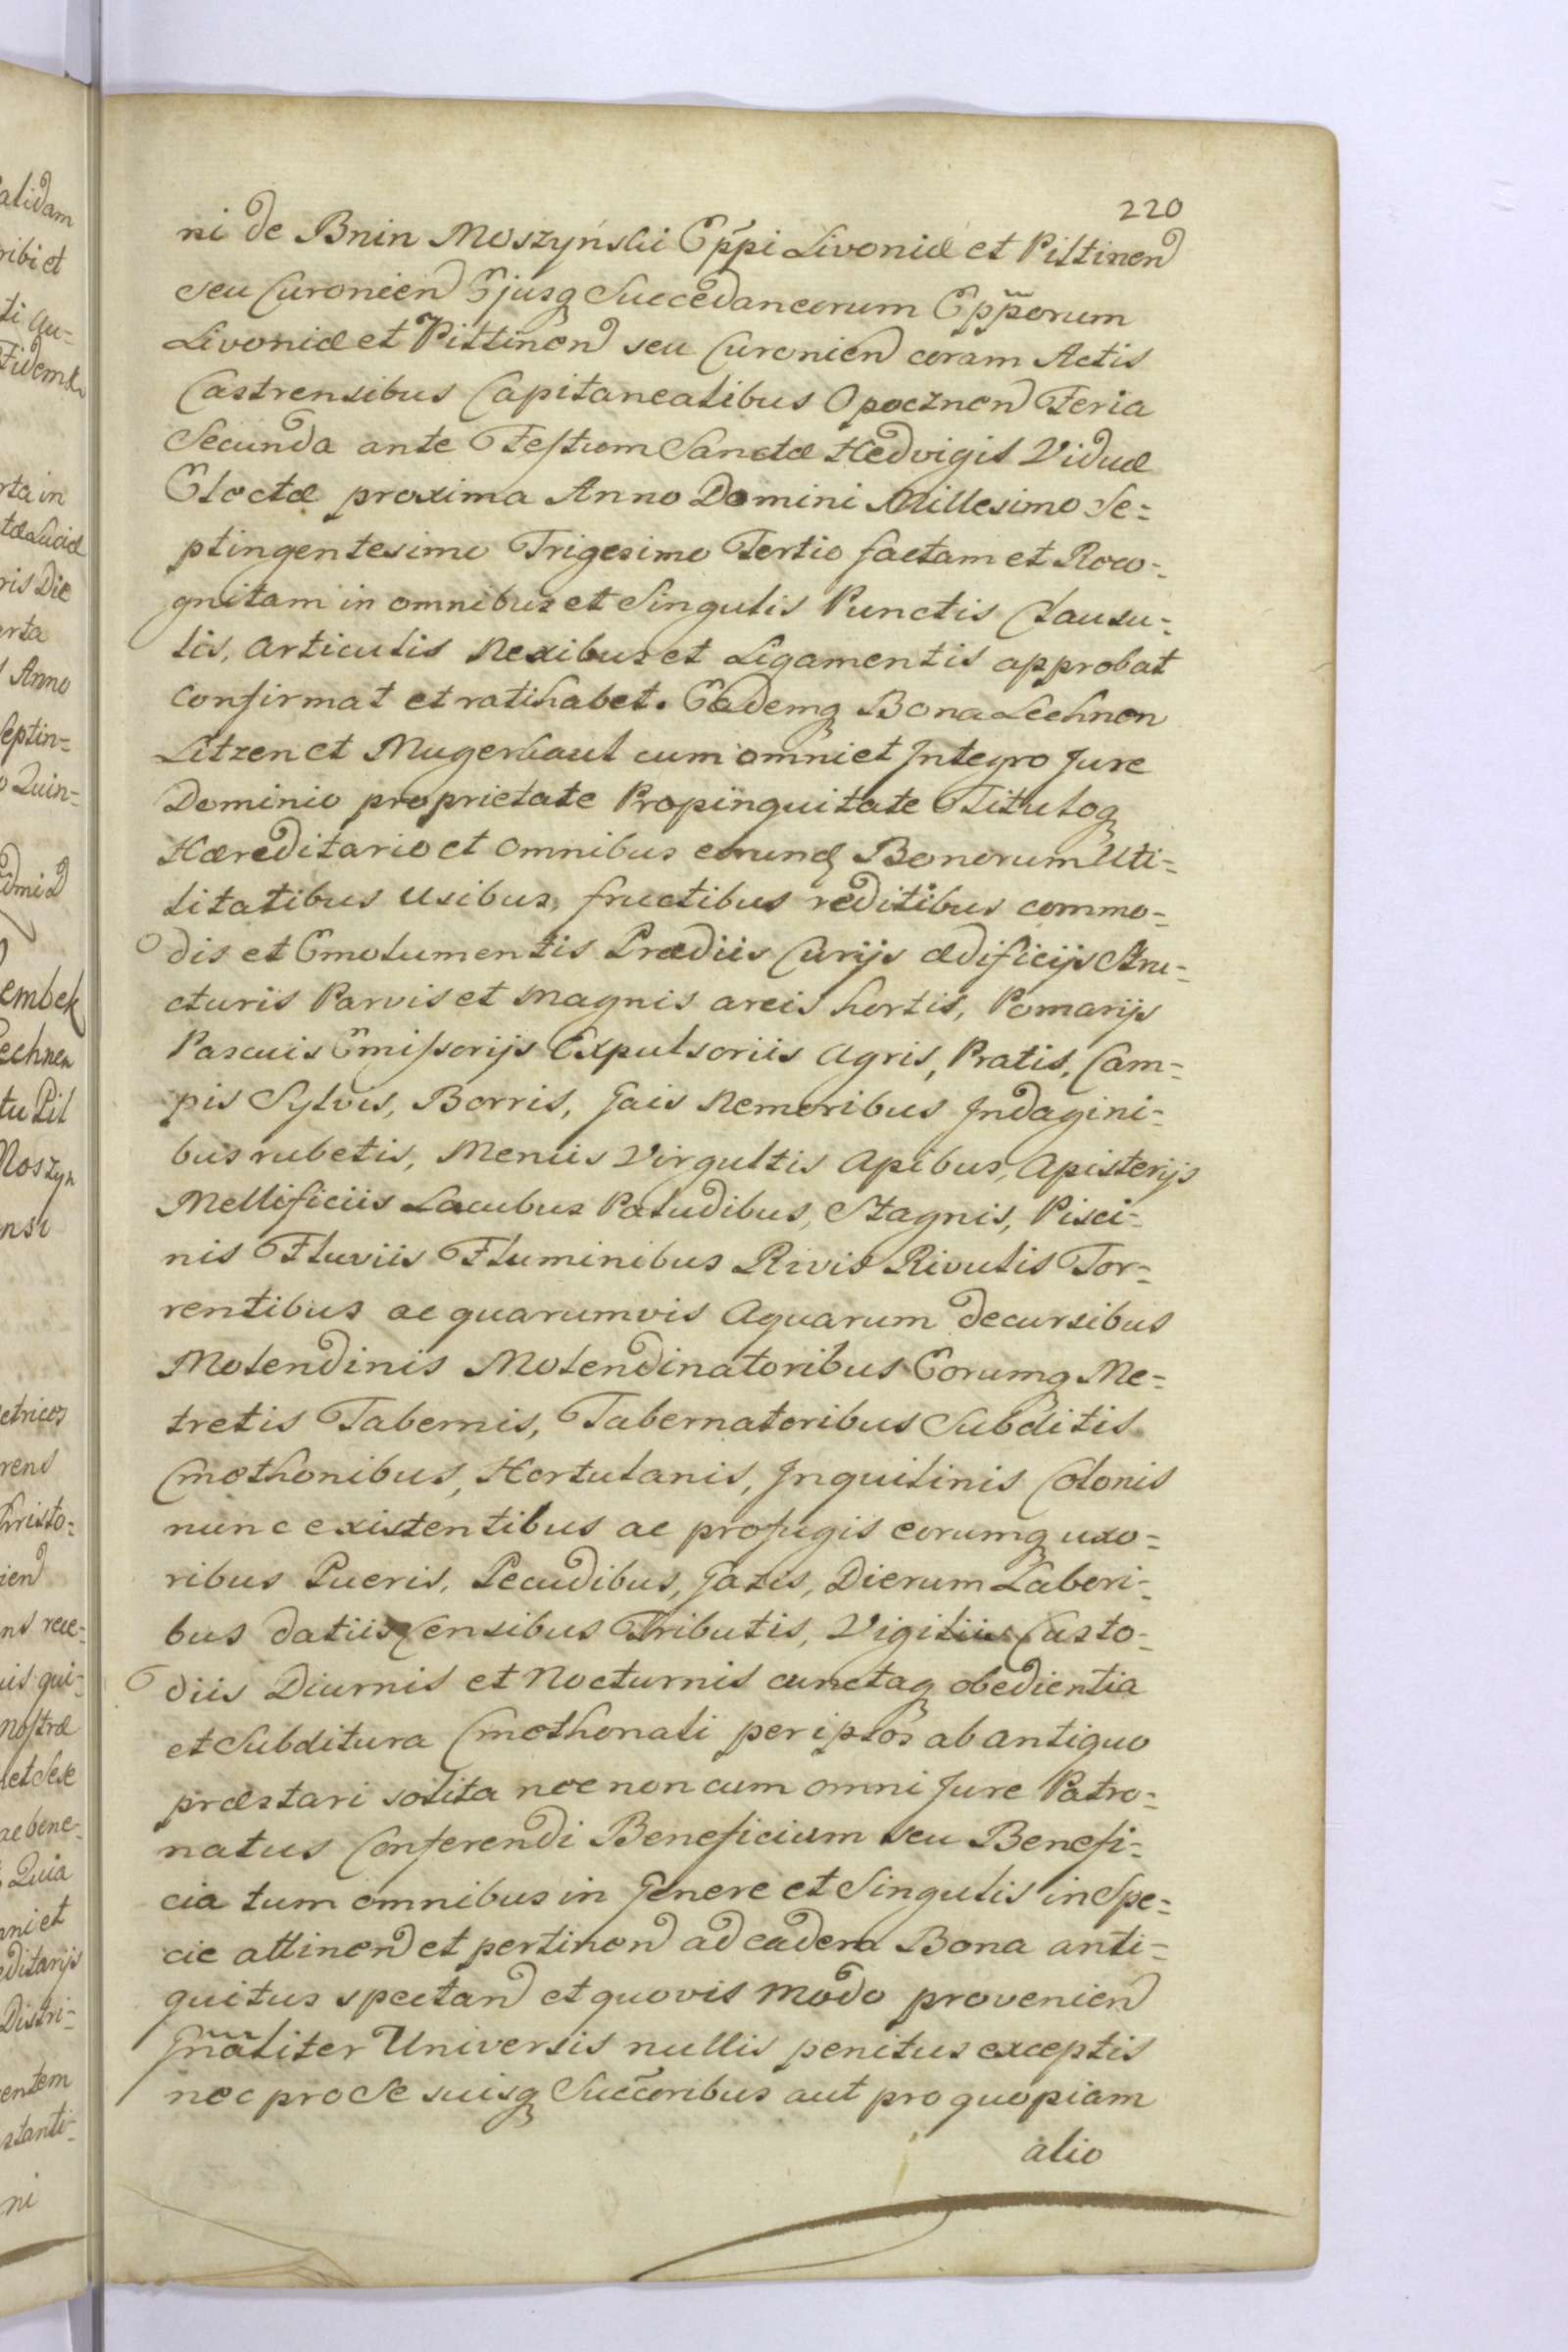 220
ni de Bnin Moszyński Eppi Livoniæ et Piltinen
seu Curonien Ejusq Succedaneorum Epporum
Livoniæ et Piltinen seu Curonien coram Actis
Castrensibus Capitanealibus Opocznen Feria
Secunda ante Festum Sanctæ Hedvigis Viduæ
Electæ proxima Anno Domini Millesimo Se=
ptingentesimo Trigesimo Tertio factam et Reco=
gnitam in omnibus et Singulis Punctis Clausu=
lis, Articulis Nexibus et Ligamentis approbat
Confirmat et ratihabet. Eademq Bona Lechnen
Litzen et Mugerhaul cum omni et Integro Jure
Dominio proprietate Propinquitate Tituloq
Hæreditario et omnibus eorund Bonorum Uti=
litatibus usibus, fructibus reditibus commo=
dis et Emolumentis Prædiis Curijs ædificijs Stru=
cturis Parvis et magnis areis hortis, Pomarijs
Pascuis Emissorijs Expulsoriis Agris, Pratis, Cam=
pis Sylvis, Borris, Gais Nemoribus Indagini=
bus rubetis, Meniis Virgultis Apibus, Apisterijs
Mellificiis Lacubus Paludibus, Stagnis, Pisci=
nis Fluviis Fluminibus Rivis Rivulis Tor=
rentibus ac quarumvis Aquarum decursibus
Molendinis Molendinatoribus Eorumq Me=
tretis Tabernis, Tabernatoribus Subditis
Cmethonibus, Hortulanis, Inquilinis Colonis
nunc existentibus ac profugis eorumq uxo=
ribus Pueris, Pecudibus, Gazis, Dierum Labori=
bus datiis Censibus Tributis, Vigiliis Custo=
diis Diurnis et Nocturnis cunctaq obedientia
et Subditura Cmethonali per ipsos ab antiquo
præstari solita nec non cum omni Jure Patro=
natus Conferendi Beneficium seu Benefi=
cia tum omnibus in Genere et Singulis in Spe=
cie attinen et pertinen ad eadem Bona anti=
quitus spectan et quovis modo provenien
Gnãliter Universis nullis penitus exceptis
nec pro Se suisq Succoribus aut pro quopiam
alio